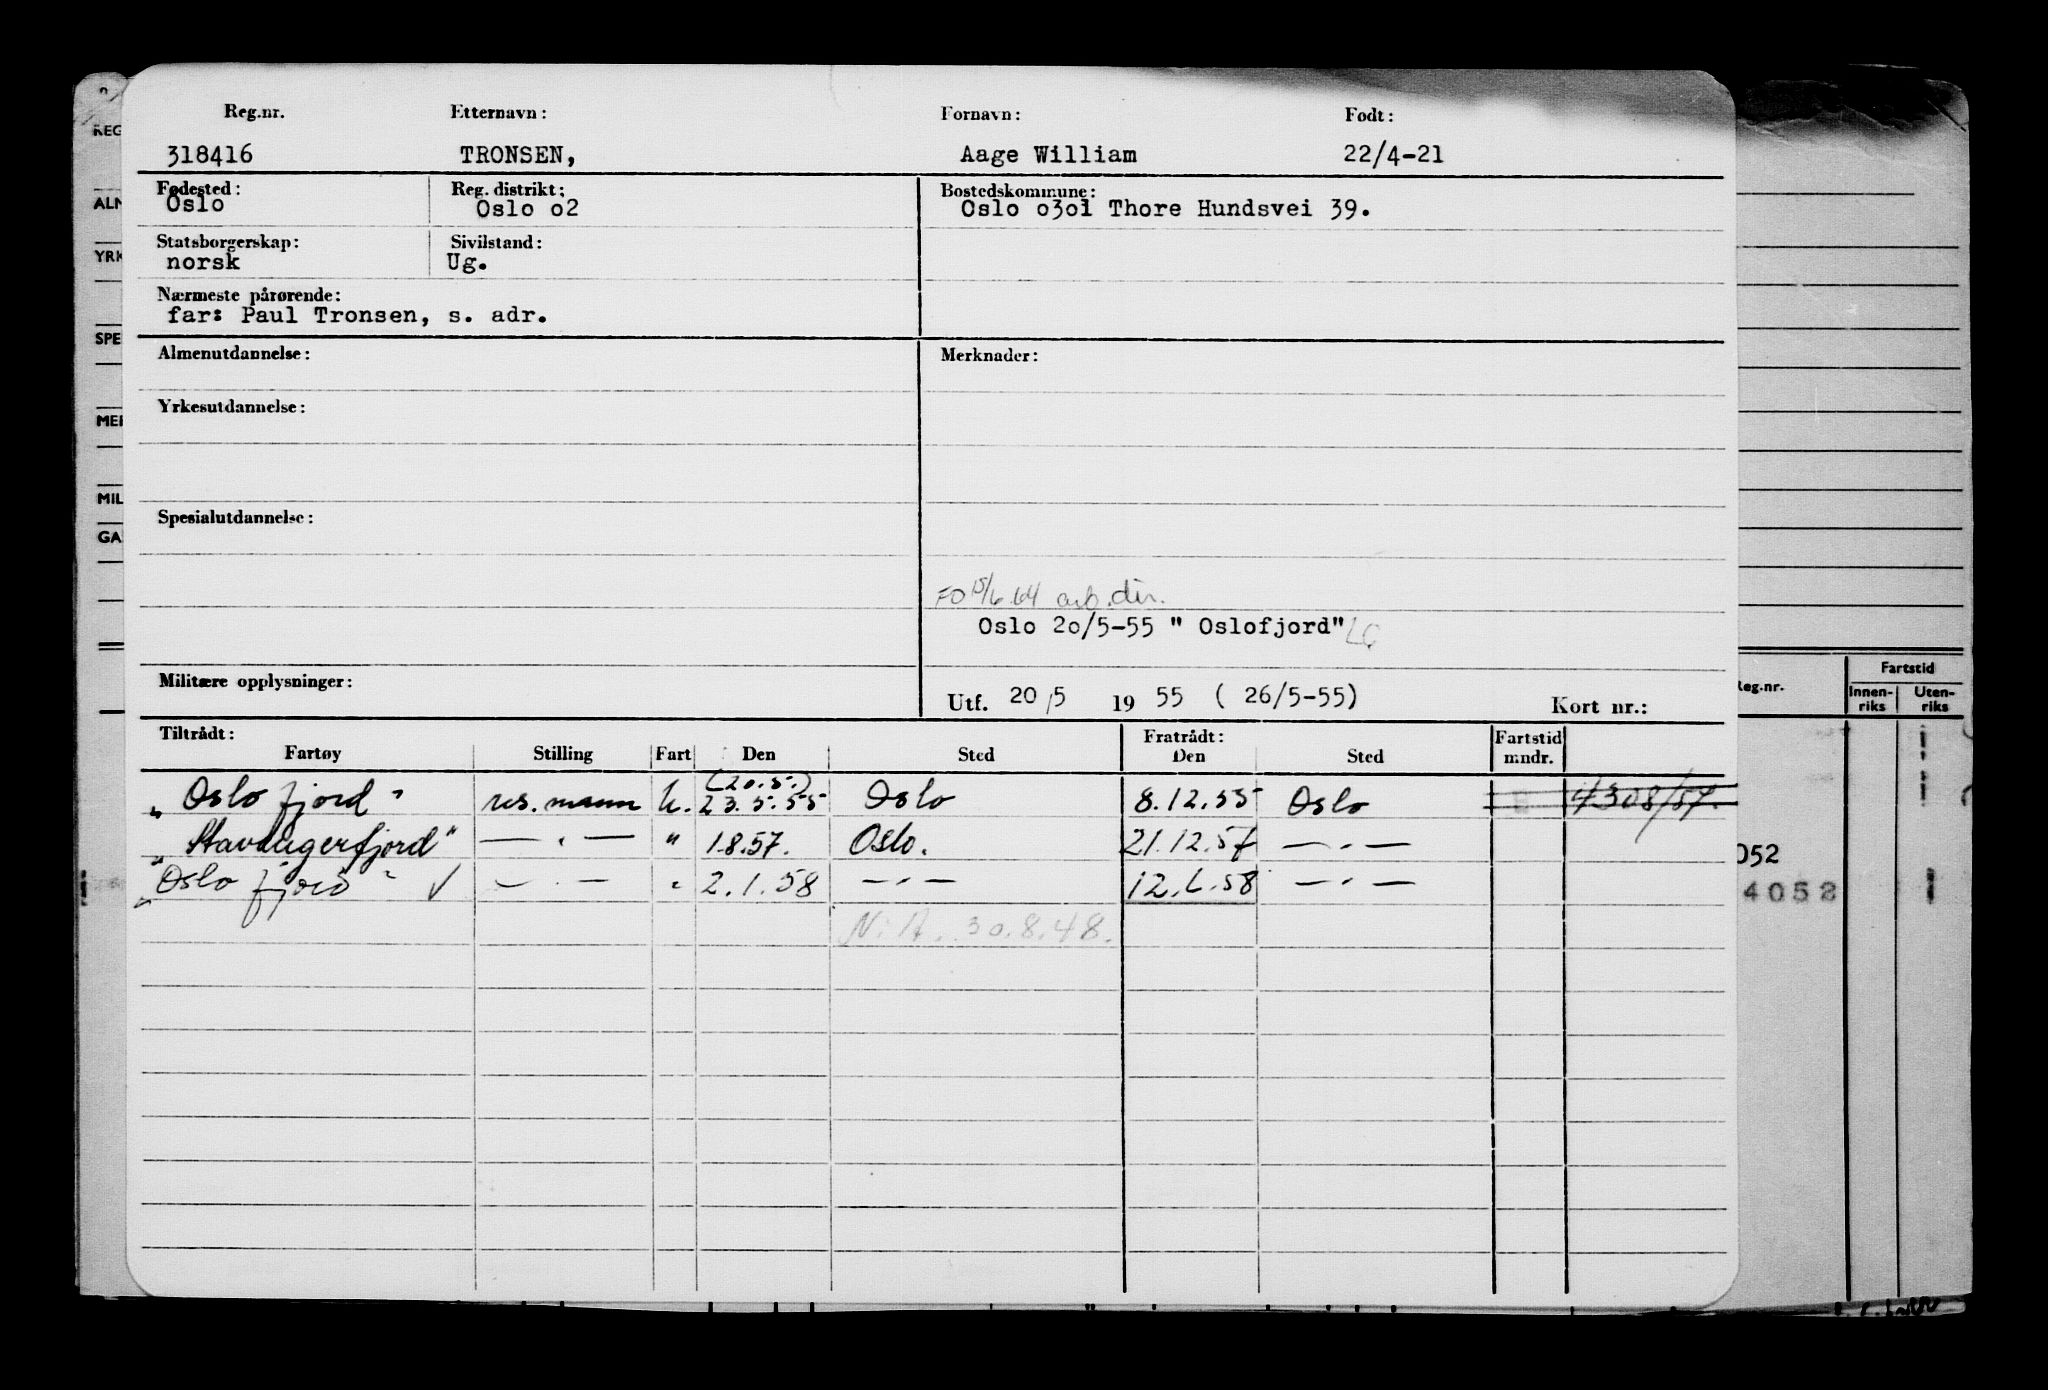 Reg.nr. Etternavn: Fornavn: Født:
318416 TRONSEN, Aage William 22/4-21
Fødested: Reg. distrikt: Bostedskommune:
Oslo Oslo o2 Oslo o3o1 Thore Hundsvei 39.
Statsborgerskap: Sivilstand:
norsk Ug.
Nærmeste pårørende:
far: Paul Tronsen, s. adr.
Almenutdannelse: Merknader:
Yrkesutdannelse:
Spesialutdannelse:
FO 15/6.64 arb.dir.
Oslo 20/5-55 " Oslofjord"
Militære opplysninger:
Utf. 20/5 19 55 ( 26/5-55) Kort nr.:
Tiltrådt: Fratrådt: Fartstid
Fartøy Stilling Fart Den Sted Den Sted mndr.
(20.5.)
„ Oslofjord" res. mann u. 23.5.55 Oslo 8.12.55 Oslo 4308/57.
„ Stavangerfjord" — " — " 1.8.57. Oslo. 21.12.57 — " —
„ Oslofjord " √ — " — " 2.1.58 — " — 12.6.58 — " —
N.A. 30.8.48.
REG
ALM
YRK
SPE
MER
MIL
GA
Reg.nr. Fartstid
Innen-riks Uten-riks
052
4052